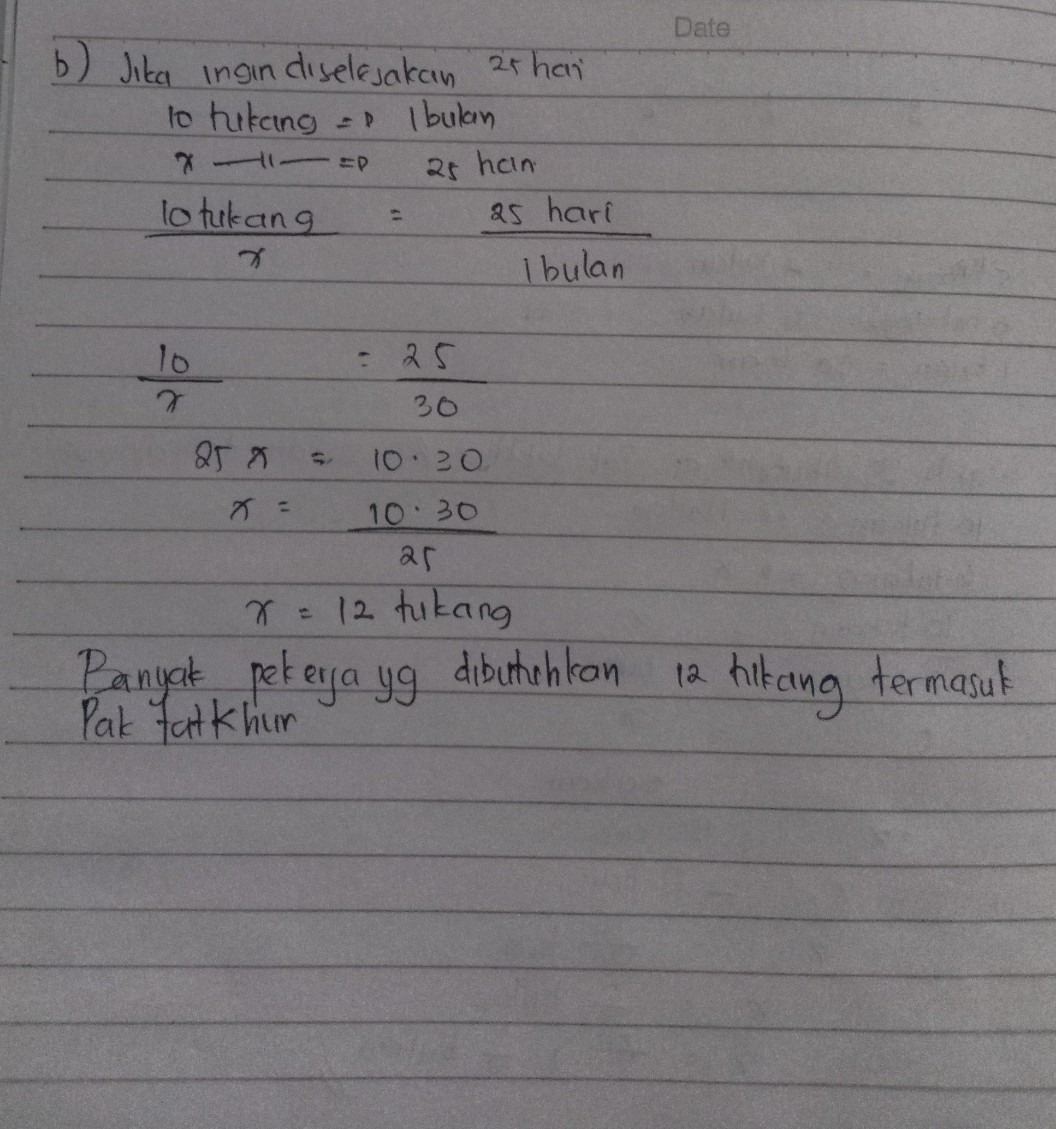 Date
b) Jika ingin diselesaikan 25 hari
10 tukang => 1 bulan
x —"— => 25 hari
10 tukang = 25 hari
x 1 bulan
10 = 25
x 30
25 x = 10 . 30
x = 10 . 30
25
x = 12 tukang
Banyak pekerja yg dibutuhkan 12 tukang termasuk
Pak fatkhur